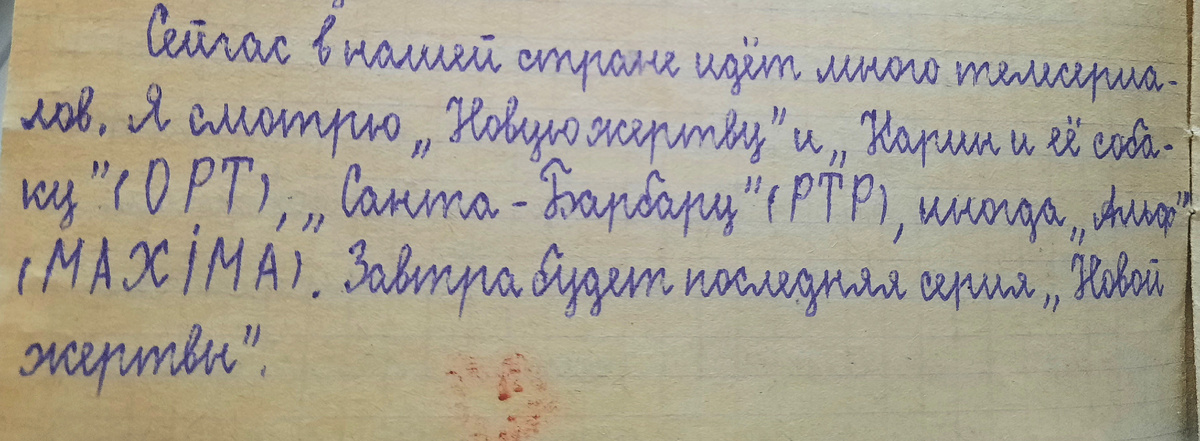 Сейчас в нашей стране идёт много телесериа-
лов. Я смотрю „Новую жертву" и „Карин и её соба-
ку" (ОРТ), „Санта-Барбару" (РТР), иногда „Альф"
(МАХIМА). Завтра будет последняя серия „Новой
жертвы".